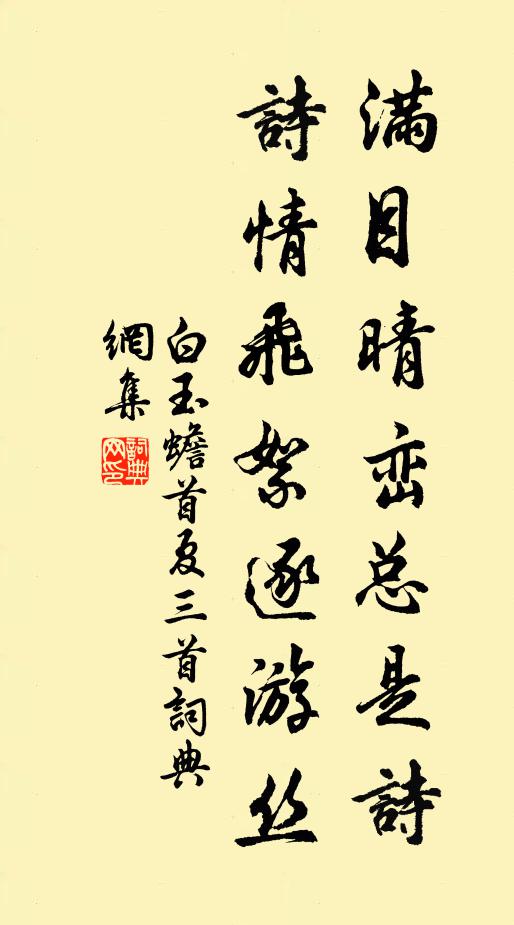 满目晴峦总是詩
詩情飛絮逐游丝
白玉蟾首夏三首詞典
網集
詞典网印